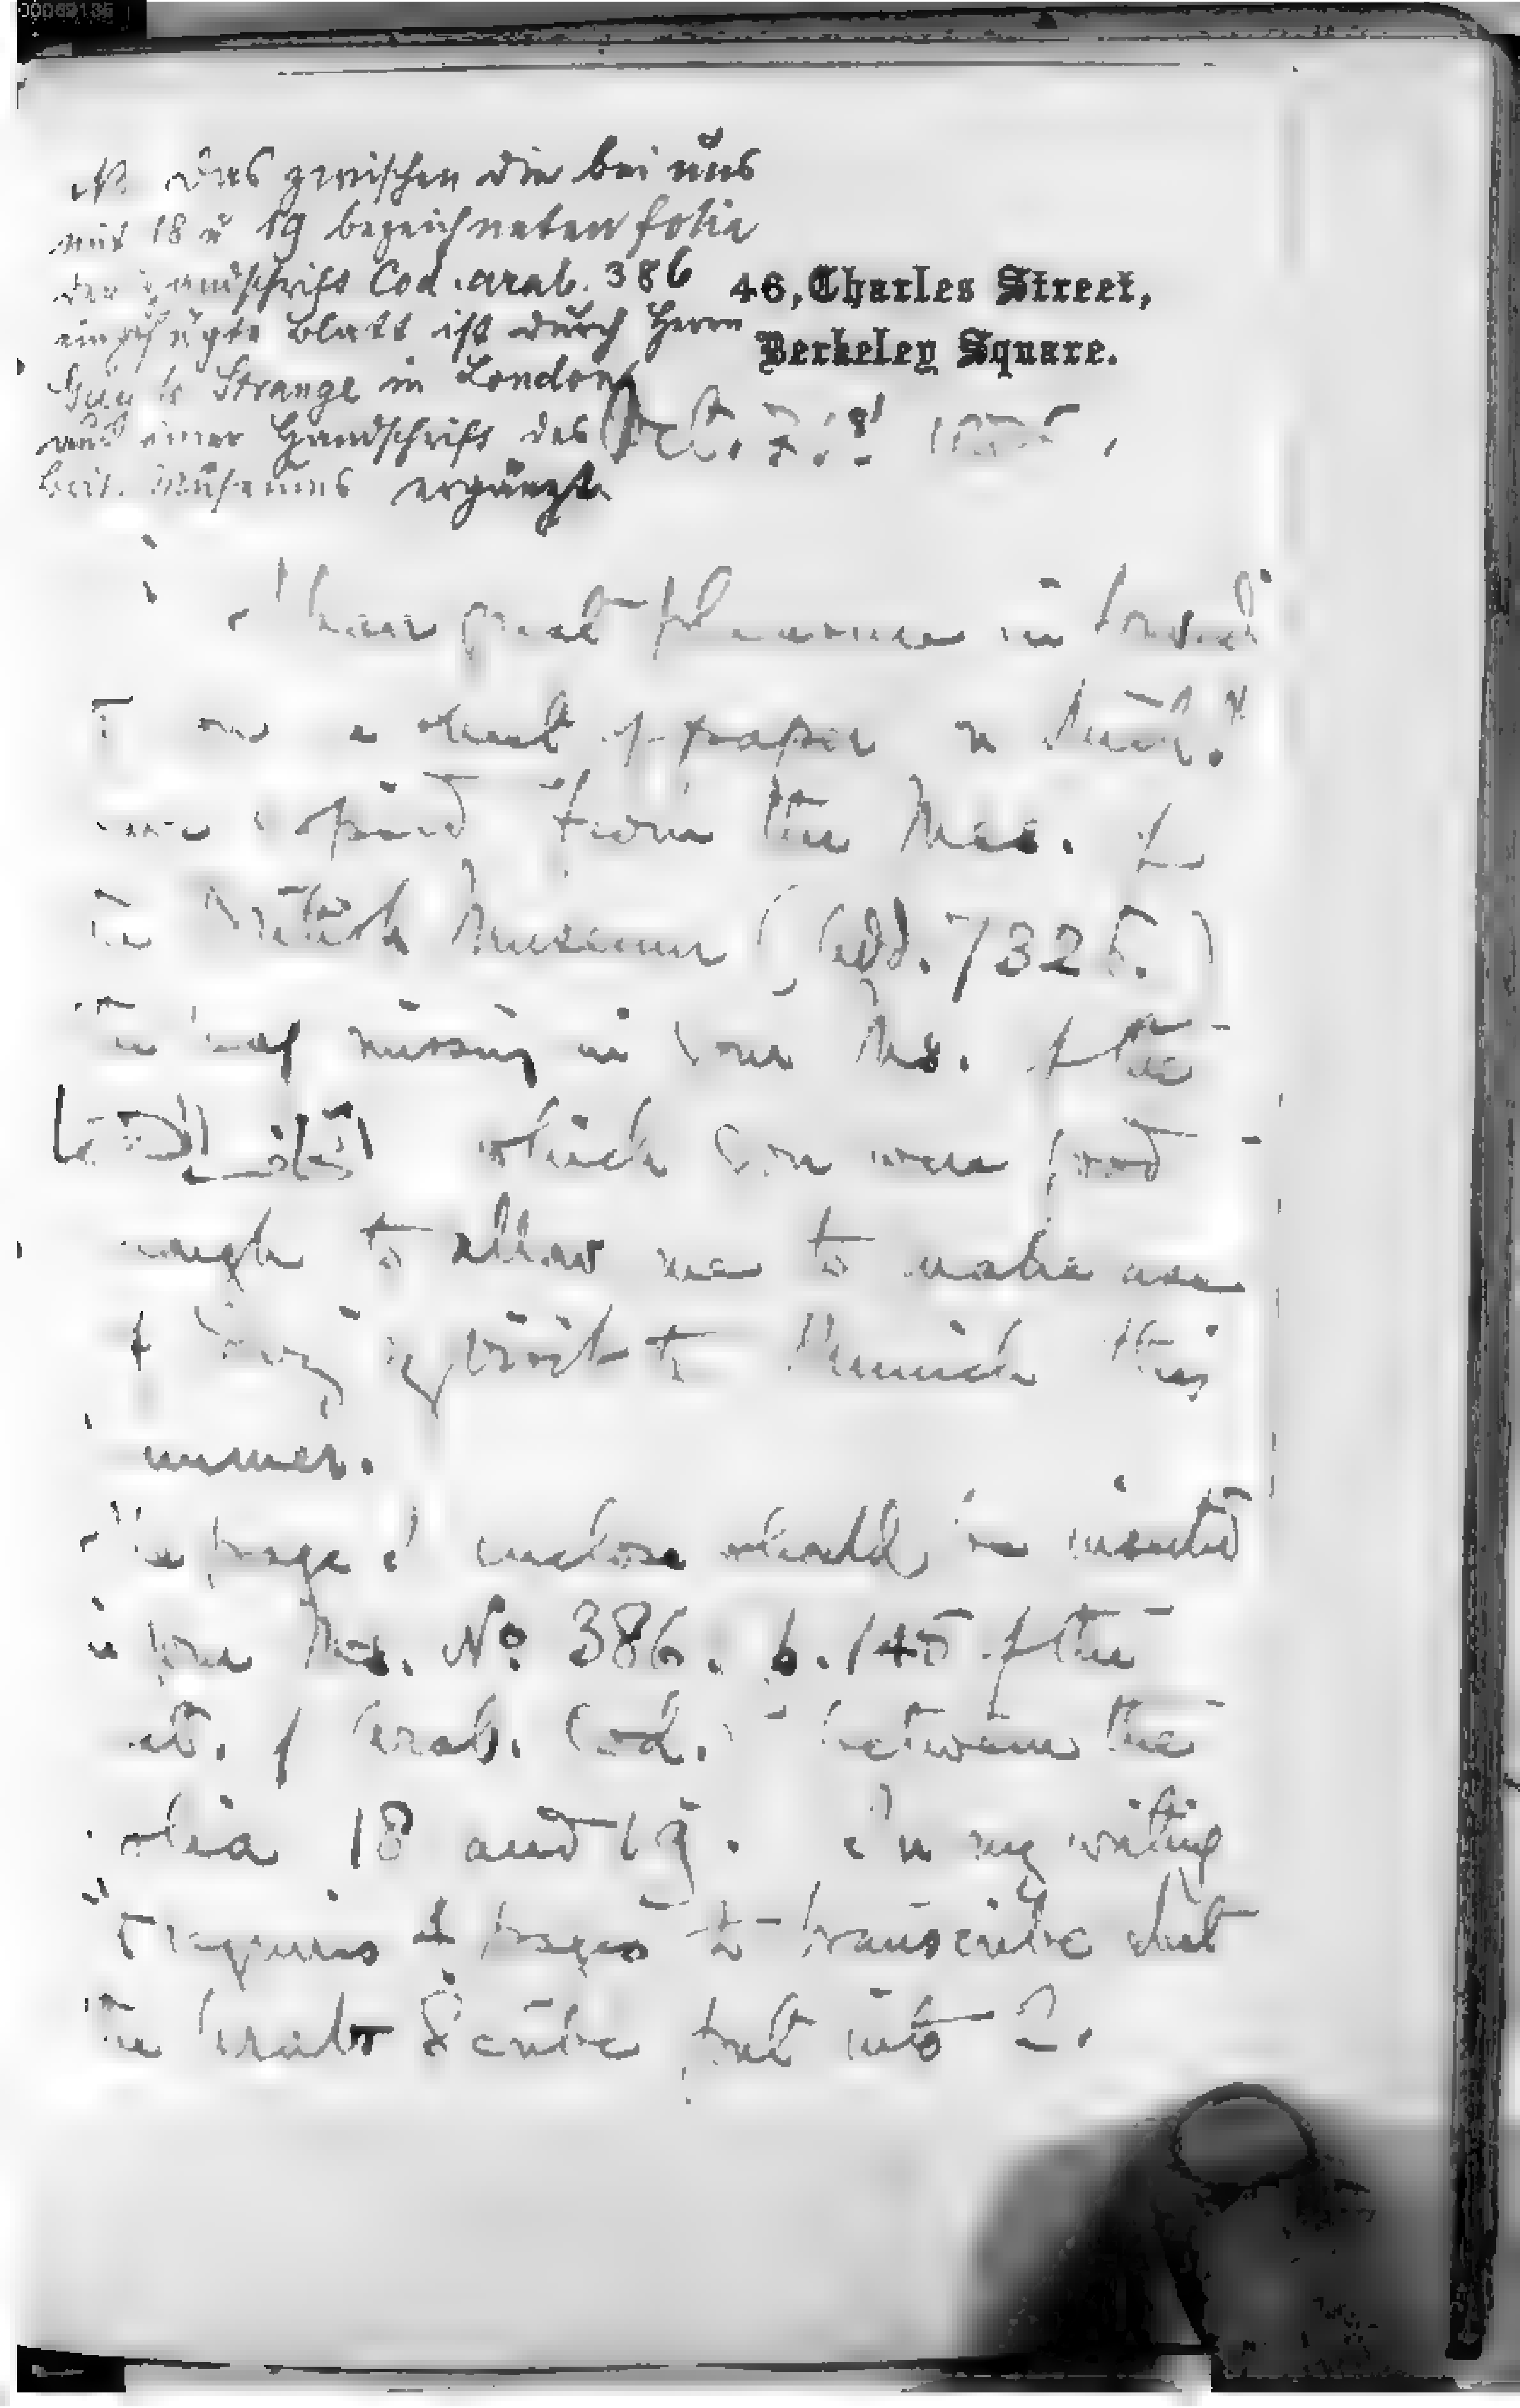 NB Das zwischen die bei uns
mit 18 u 19 bezeichneten folia
der Handschrift Cod. arab. 386
eingefügte Blatt ist durch Herrn
Guy le Strange in London
aus einer Handschrift des
brit. Museums ergänzt.
46, Charles Street,
Berkeley Square.
Oct.
I have great pleasure in
on a sheet of paper
copied from the Mss. of
the British Museum (Add. 7325.)
the leaf missing in your Ms. of the
which you were good
enough to allow me to make use
of during my visit to Munich this
summer.
The page I enclose should be inserted
in your Ms. No. 386. p. 145 of the
Cat. of Arab. Cod. between the
folia 18 and 19. In my writing
it requires 4 pages to transcribe what
the Arab Scribe put into 2.